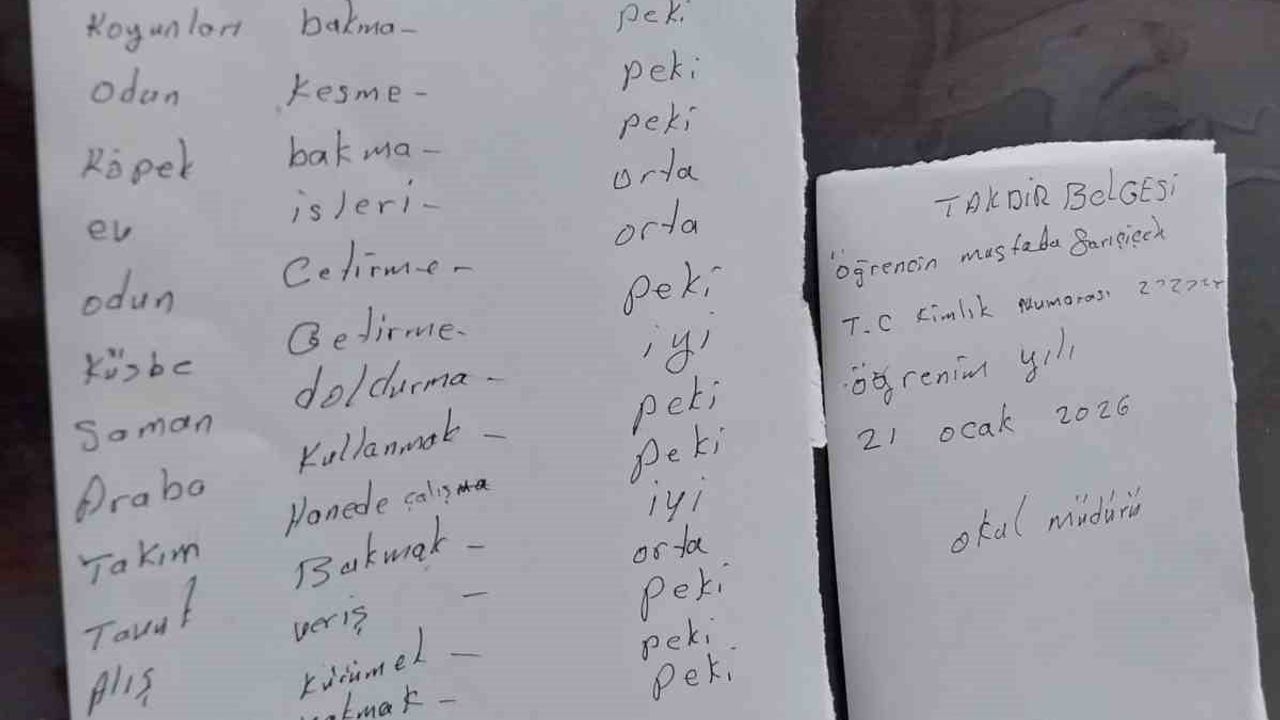 Koyunları bakma - peki
Odun kesme - peki
Köpek bakma - peki
ev işleri - orta
odun Getirme - orta
Küsbe Getirme - peki
Saman doldurma - iyi
Araba Kullanmak - peki
Takım Hanede çalışma peki
Tavuk Bakmak - iyi
Alış veriş - orta
Kürümek - peki
peki
peki
TAKDİR BELGESİ
öğrencin mustafa Sarıçiçek
T.C Kimlik Numarası
öğrenim yılı
21 ocak 2026
okul müdürü